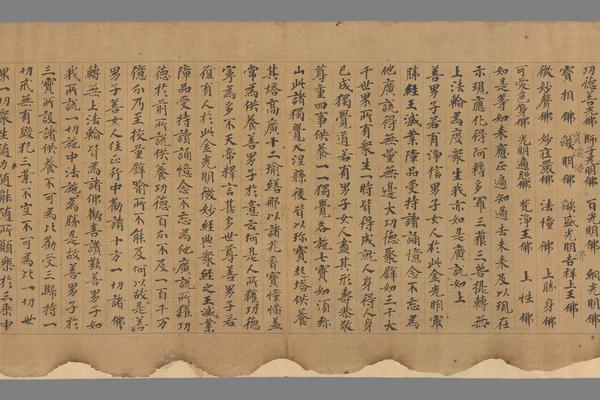 功德善光佛 師子光明佛 百光明佛 細光明佛
寶相佛 燄明佛 燄盛光明吉祥上王佛
微妙聲佛 妙莊嚴佛 法幢佛 上勝身佛
可愛色身佛 光明遍照佛 梵淨王佛 上性佛
如是等如來應正遍知過去未來及以現在
示現應化得阿耨多羅三藐三菩提轉無
上法輪為度衆生我亦如是廣說如上
善男子若有淨信男子女人於此金光明最
勝經王滅業障品受持讀誦憶念不忘為
他廣說得無量無邊大功德聚譬如三千大
千世界所有衆生一時皆得成就人身得人身
已成獨覺道若有男子女人盡其形壽恭敬
尊重四事供養一一獨覺各施七寶如須弥
山此諸獨覺入涅槃後皆以珎寶起塔供養
其塔高廣十二瑜繕那以諸花香寶幢幡蓋
常為供養善男子於意云何是人所獲功德
寧為多不天帝釋言甚多世尊善男子若
復有人於此金光明微妙經典衆經之王滅業
障品受持讀誦憶念不忘為他廣說所獲功
德於前所說供養功德百分不及一百千万
億分乃至挍量譬喻所不能及何以故是善
男子善女人住正行中勸請十方一切諸佛
轉無上法輪皆為諸佛歡喜讚歎善男子如
我所說一切施中法施為勝是故善男子於
三寶所設諸供養不可為比勸受三歸持一
切戒無有毀犯三業不空不可為比一切世
界一切衆生随力随能随所願樂於三乘中